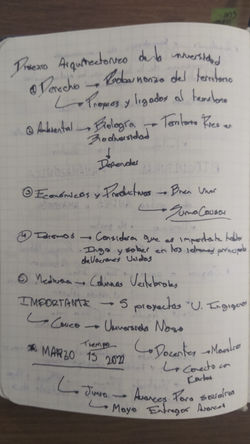 Proceso Arquitectonico de la universidad
① Derecho → Gobernanza del territorio
↳ Propios y ligados al territorio
② Ambiental → Biología → Territorio Rico en Biodiversidad
↓
Defender
③ Económicos y Productivos → Buen Vivir
↳ Sumak Kawsay
④ Idiomas → Considera que es importante hablar
Inga y estar en los idiomas principales
de Naciones Unidas
⑤ Medicina → Columna Vertebral
IMPORTANTE → 5 proyectos "U. Indígena"
↳ Cauca → Universidad Nasa
* MARZO 15 2022
Tiempo
↳ Docentes → Maestros
↳ Conecto con
↳ Junio → Avances Para
↳ Mayo Entregar Avances